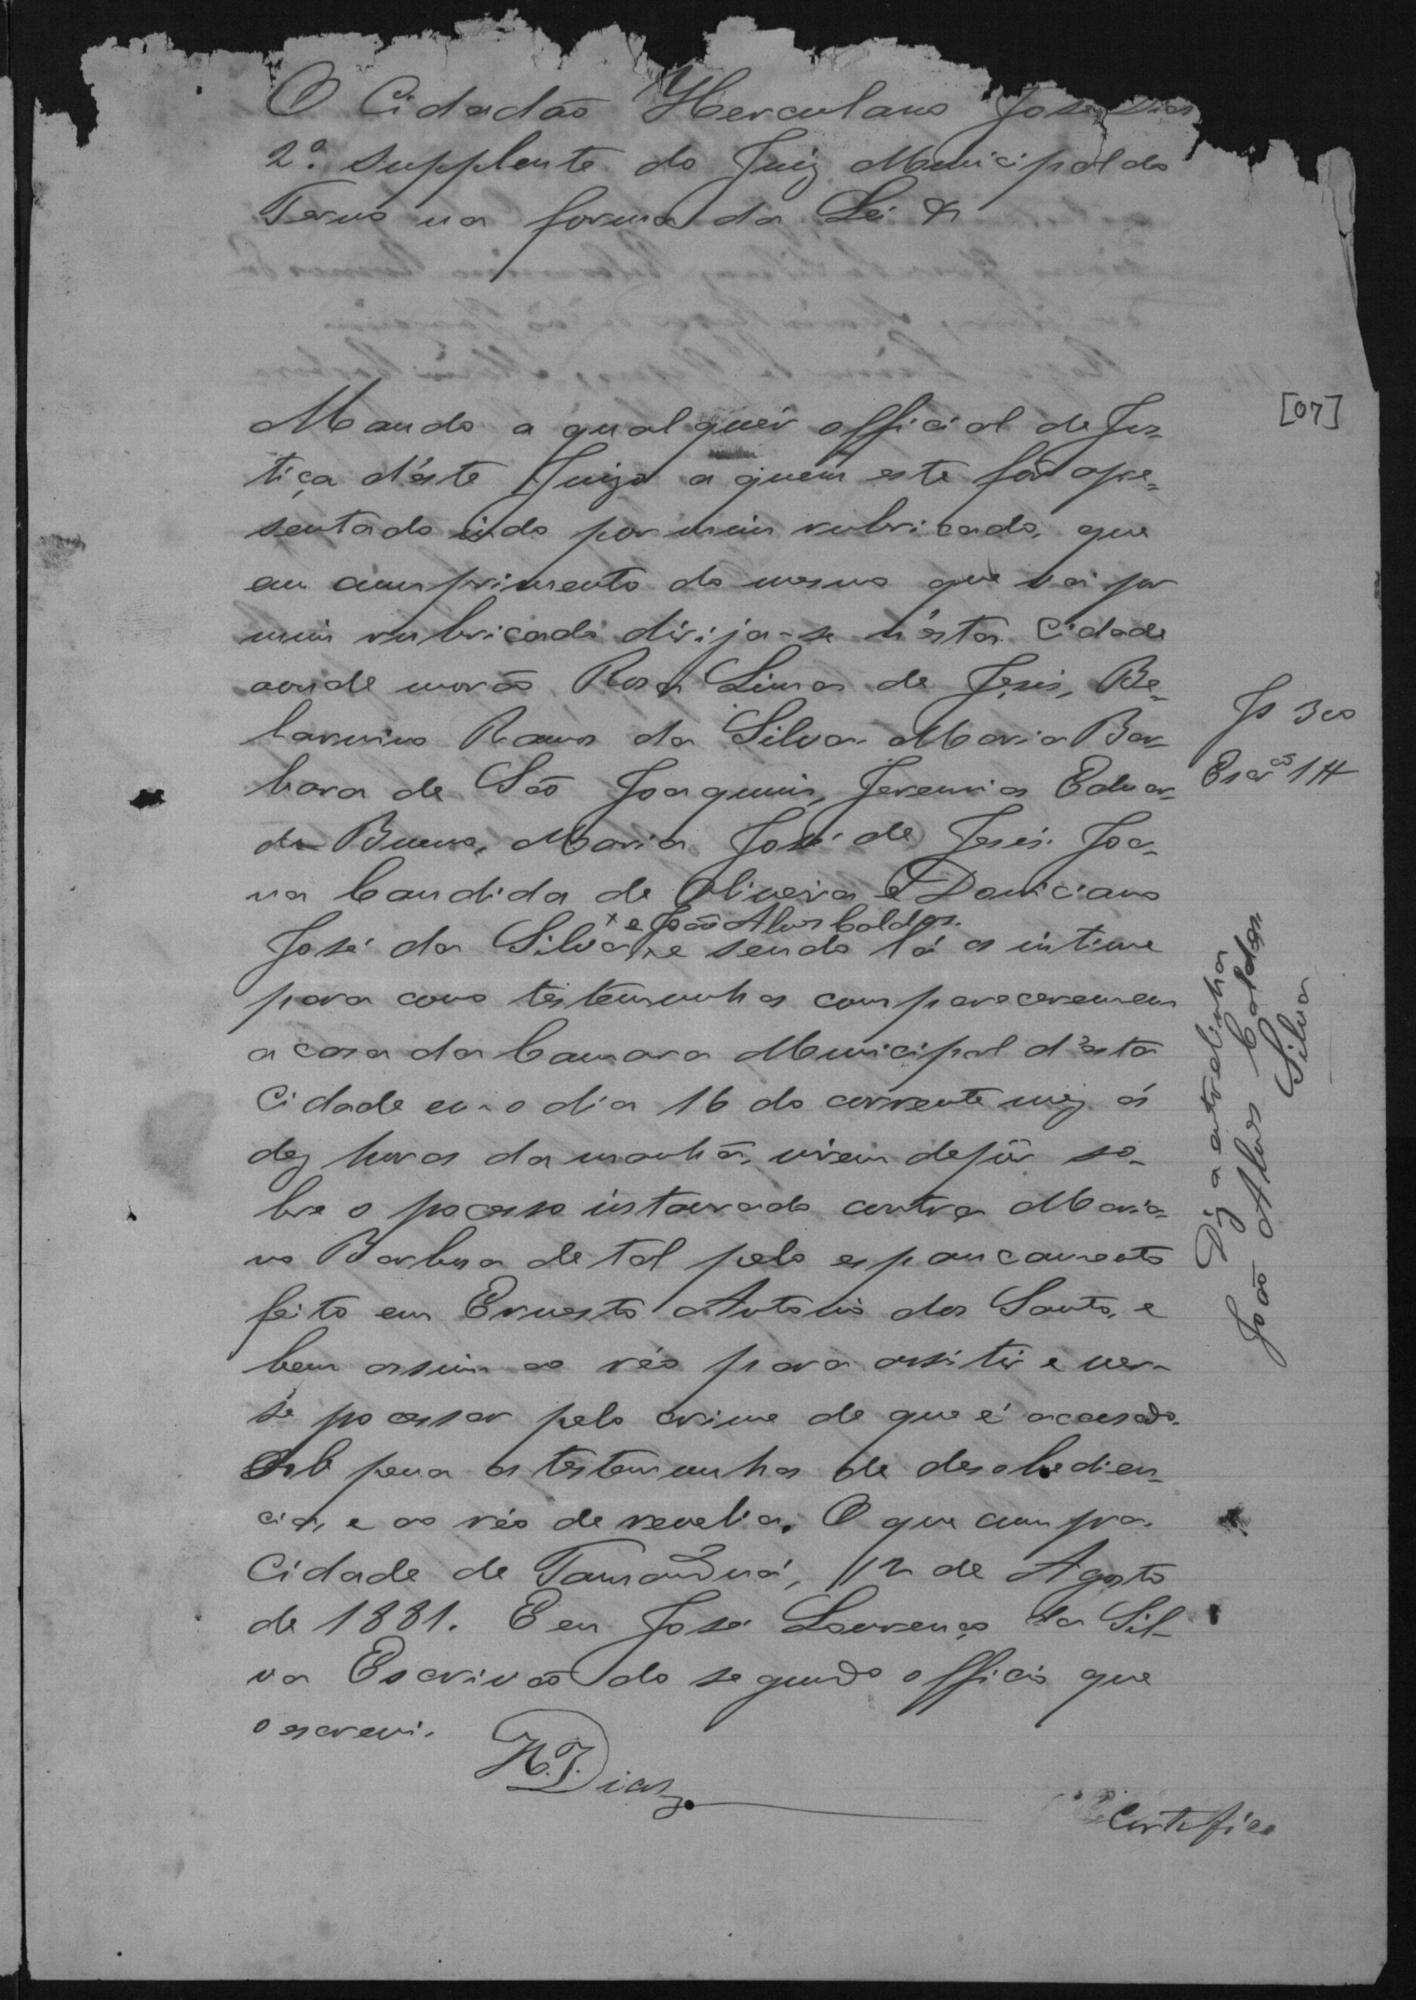 O Cidadão Herculano José Dias
2º. supplente do Juiz Municipal do
Termo na forma da Lei &
Mando a qualquer official de Jus-
tiça d'éste Juizo a quem este fôr apre-
sentado indo por mim rubricado, que
em cumprimento do mesmo que vai por
mim rubricado dirija-se n'ésta Cidade
aonde morão Rosa Lima de Jesús, Be-
larmino Ramos da Silva Maria Bar-
bara de São Joaquim, Jeremias Eduar-
do Bueno, Maria José de Jesús. Joa-
na Candida de Oliveira e Domiciano
x e João Alves Caldas.
José da Silva x e sendo lá os intime
para como testemunhas compareceremem
a casa da Camara Municipal d'ésta
Cidade em o dia 16 do corrente mez ás
dez horas da manhã, virem depôr so-
bre o pocesso instaurado contra Maria-
no Barbosa de tal pelo espancamento
feito em Ernesto Antonio dos Santos, e
bem assim ao réo para assitir e ver-
se pocessar pelo crime de que é acusado.
Sob pena as testemunhas de desobedien-
cia, e ao réo de revelia. O que cumpra.
Cidade de Tamanduá, 12 de Agosto
de 1881. E eu José Lourenço da Sil-
va Escrivão do segundo officio que
o escrevi.
H. J. Dias
Certifico
[07]
Js 300
Escr.as 1#
Diz a entrelinha
João Alves Caldas
Silva